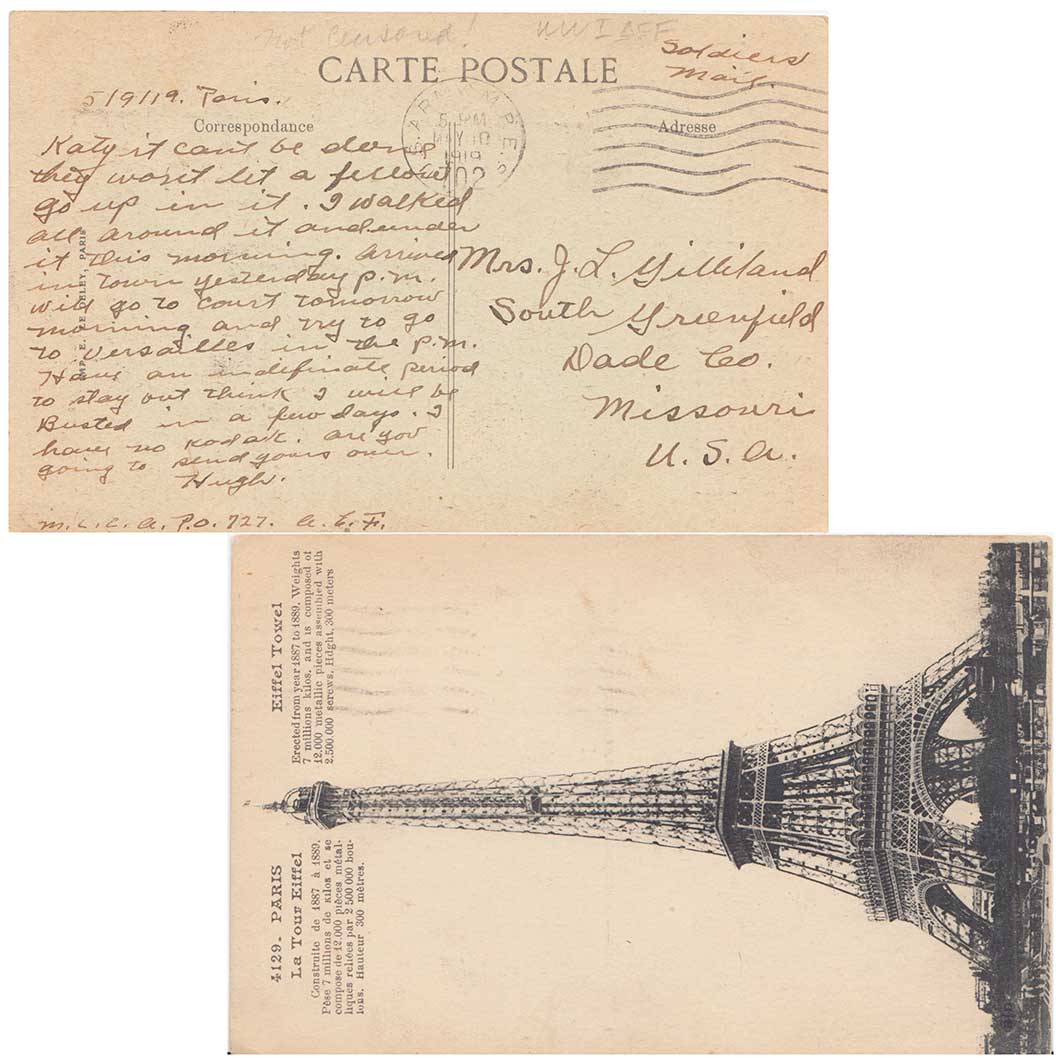 Not Censored!
WWI AEF
CARTE POSTALE
Soldiers
Mail.
5/9/19. Paris.
Correspondance
Adresse
U.S. ARMY M.P.E.S.
5 PM
MAY 10
1919
702
Katy it can't be done
they won't let a fellow
go up in it. I walked
all around it and under
it this morning. Arrived
in town yesterday p.m.
will go to court tomorrow
morning and try to go
to Versailles in the p.m.
Have an indefinate period
to stay but think I will be
Busted in a few days. I
have no Kodak. are you
going to send yours over.
Hugh.
M.L.C. A.P.O. 727. A.E.F.
Mrs. J. L. Gilliland
South Greenfield
Dade Co.
Missouri
U. S. A.
IMP. E. LE DELEY, PARIS
4129. PARIS
La Tour Eiffel
Construite de 1887 à 1889.
Pèse 7 millions de kilos et se
compose de 12.000 pièces métal-
liques reliées par 2 500.000 bou-
lons. Hauteur 300 mètres.
Eiffel Towel
Erected from year 1887 to 1889. Weights
7 millions kilos, and is composed of
12.000 metallic pieces assembied with
2.500.000 serews. Hdght, 300 meters